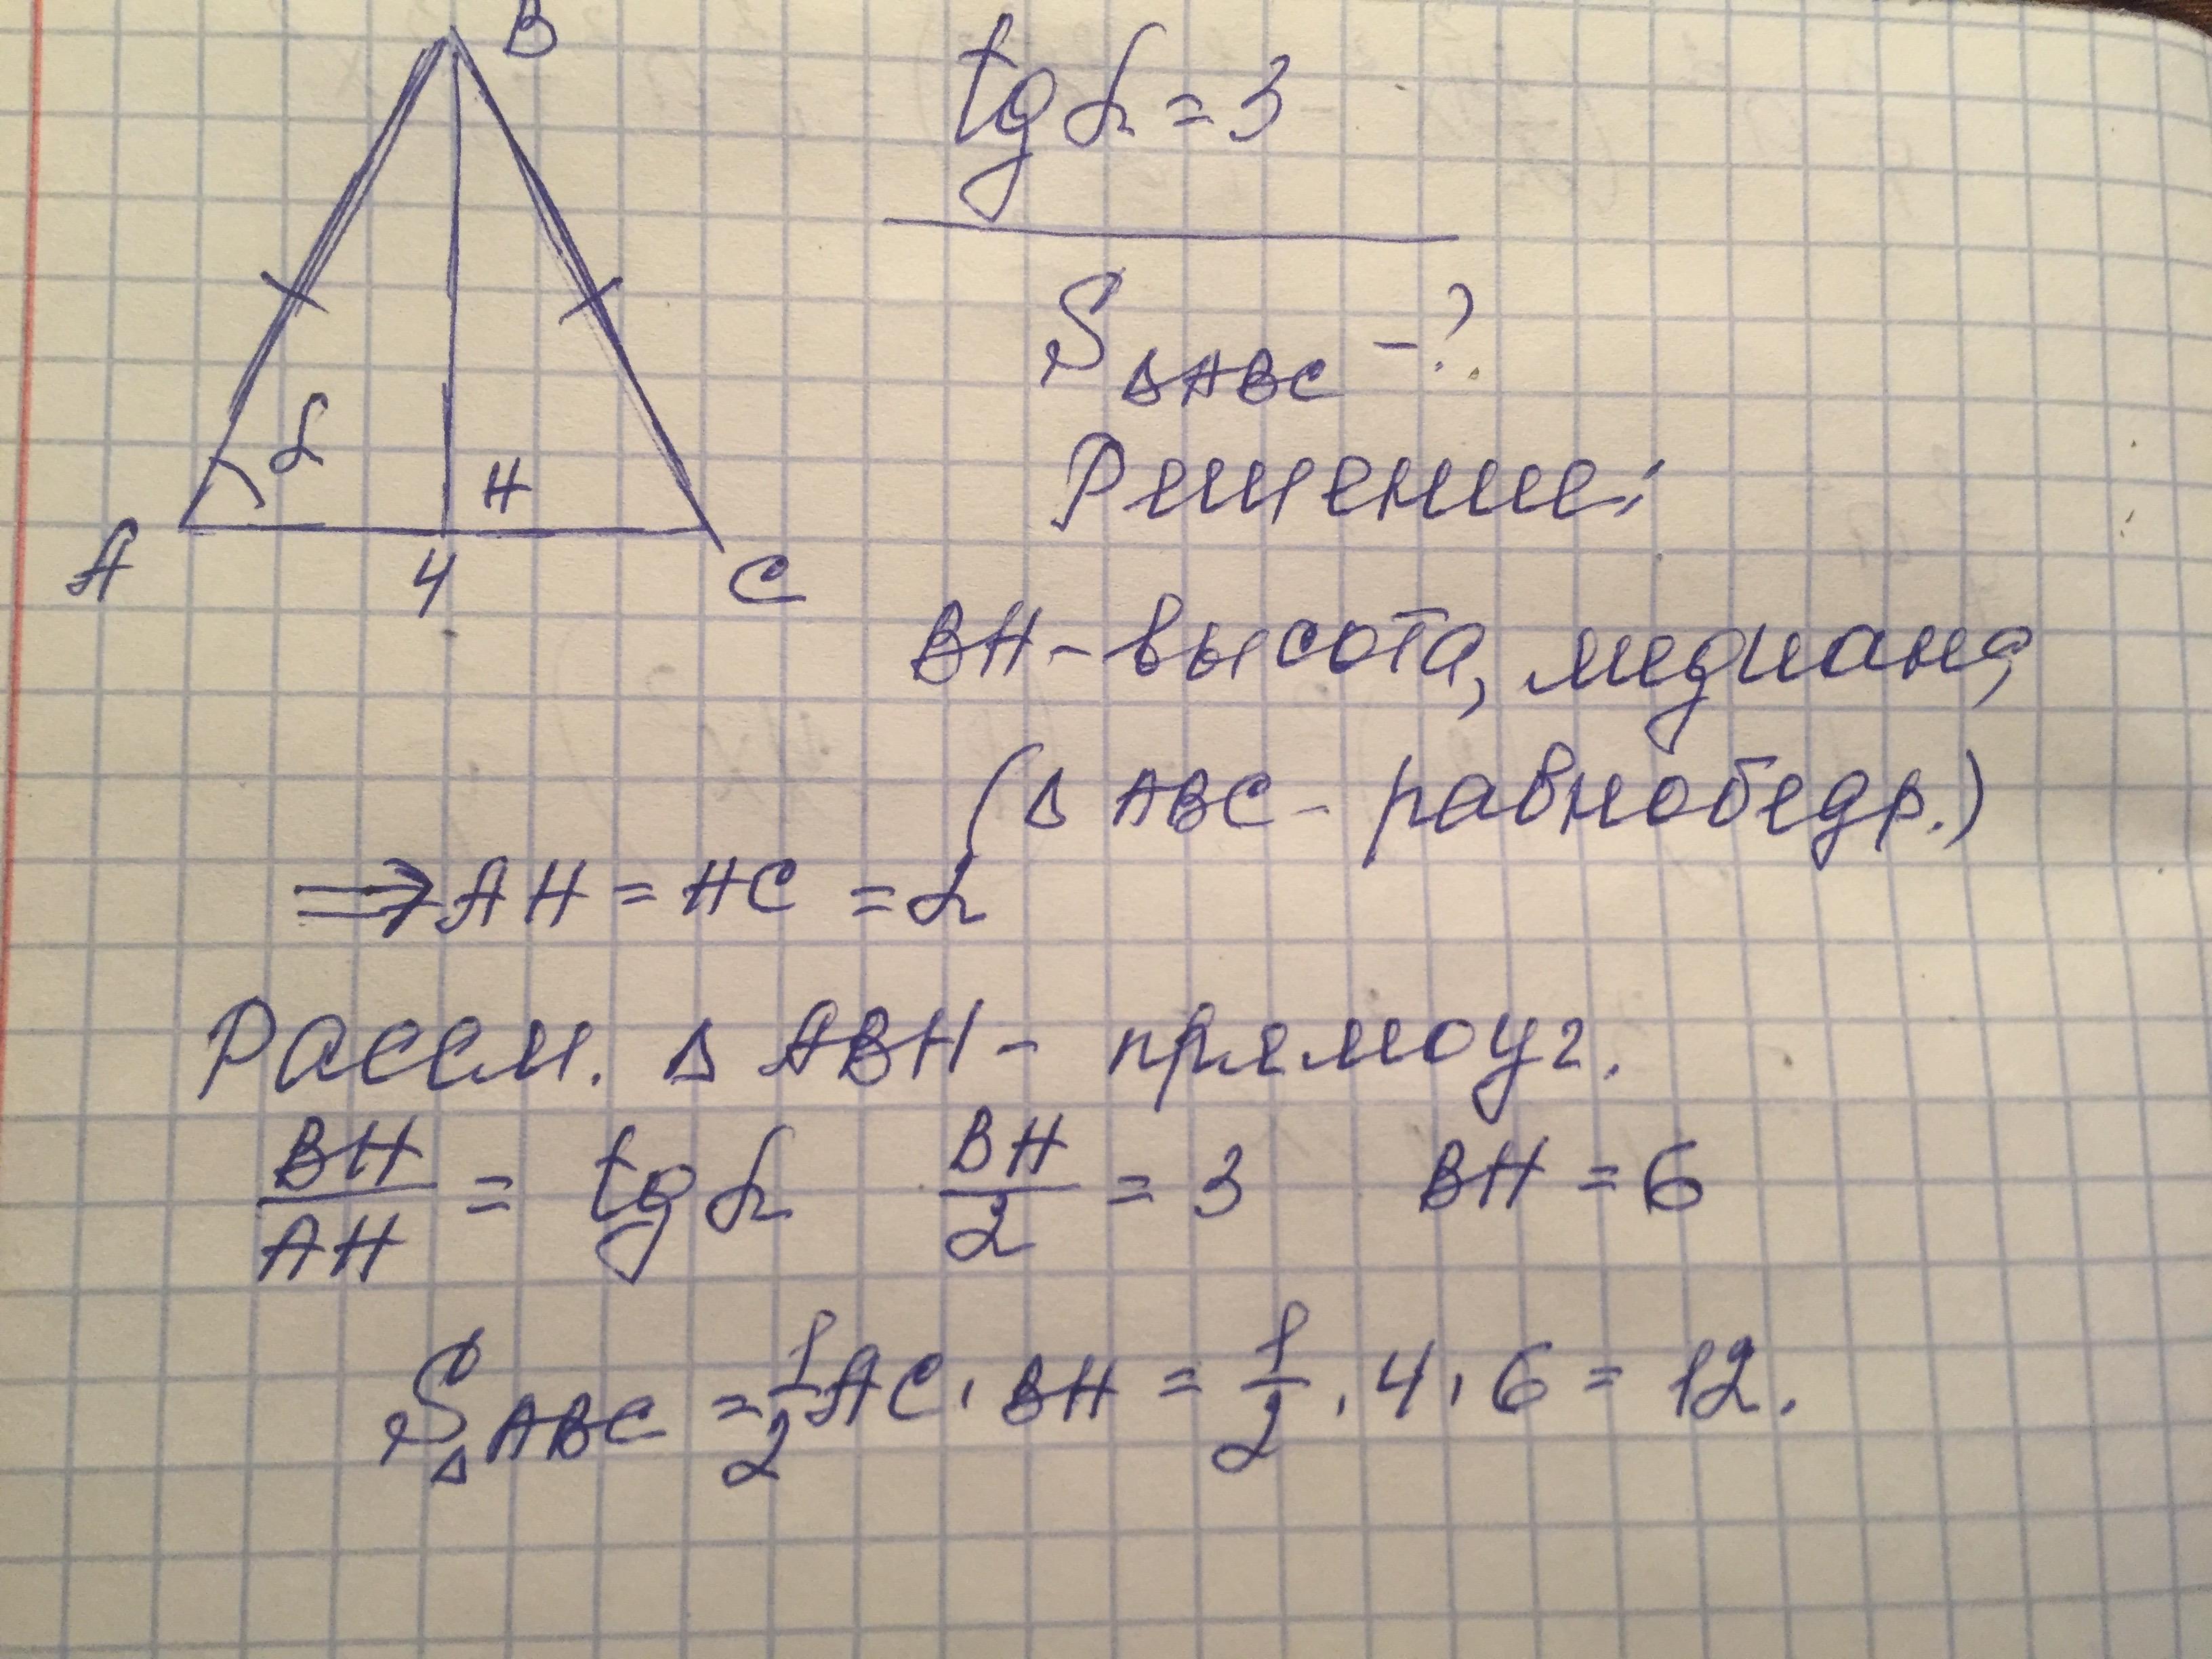 B
tg α = 3
S ΔABC - ?
α
H
A
4
C
Решение:
BH - высота, медиана,
(Δ ABC - равнобедр.)
⇒ AH = HC = 2
Рассм. Δ ABH - прямоуг.
BH/AH = tg α BH/2 = 3 BH = 6
S Δ ABC = 1/2 AC · BH = 1/2 · 4 · 6 = 12.